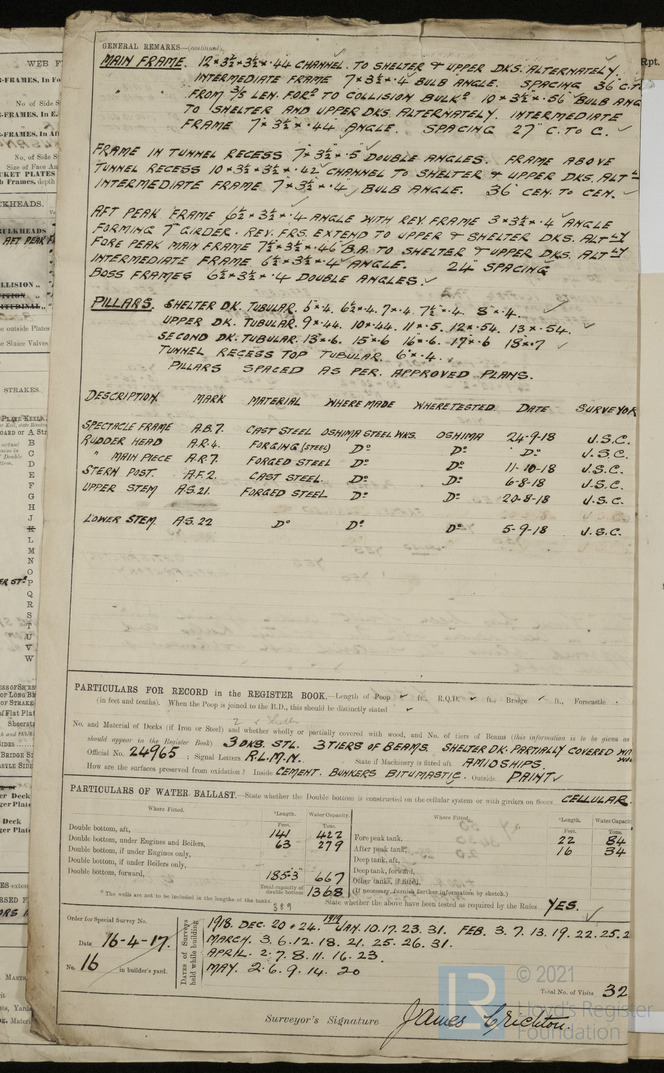 GENERAL REMARKS—(continued).
MAIN FRAME. 12×3½×3½×.44 CHANNEL. TO SHELTER & UPPER DKS. ALTERNATELY.
INTERMEDIATE FRAME 7×3½×.4 BULB ANGLE. SPACING 36 C.TO
FROM 3/5 LEN. FORD TO COLLISION BULKD 10×3½×.56 BULB ANG
TO SHELTER AND UPPER DKS. ALTERNATELY. INTERMEDIATE
FRAME 7×3½×.44 ANGLE. SPACING 27" C. TO C.
FRAME IN TUNNEL RECESS 7×3½×.5 DOUBLE ANGLES. FRAME ABOVE
TUNNEL RECESS 10×3½×3½×.42 CHANNEL TO SHELTER & UPPER DKS. ALT
INTERMEDIATE FRAME 7×3½×.4 BULB ANGLE. 36 CEN. TO CEN.
AFT PEAK FRAME 6½×3½×.4 ANGLE WITH REV FRAME 3×3½×.4 ANGLE
FORMING T GIRDER. REV. FRS. EXTEND TO UPPER & SHELTER DKS. ALTLY
FORE PEAK MAIN FRAME 7½×3½×.46 B.A. TO SHELTER & UPPER DKS. ALTLY
INTERMEDIATE FRAME 6½×3½×.4 ANGLE. 24" SPACING
BOSS FRAMES 6½×3½×.4 DOUBLE ANGLES.
PILLARS. SHELTER DK. TUBULAR. 6×.4. 6½×.4. 7×.4. 7½×.4. 8×.4.
UPPER DK. TUBULAR. 9×.44. 10×.44. 11×.5. 12×.54. 13×.54.
SECOND DK. TUBULAR. 13×.6. 15×.6 16×.6. 17×.6 18×.7
TUNNEL RECESS TOP TUBULAR. 6×.4.
PILLARS SPACED AS PER. APPROVED PLANS.
DESCRIPTION MARK MATERIAL WHERE MADE WHERE TESTED DATE SURVEYOR
SPECTACLE FRAME A.B.7. CAST STEEL OSHIMA STEEL WKS. OSHIMA 24-9-18 J.S.C.
RUDDER HEAD A.R.4. FORGING (STEEL) Do Do Do J.S.C.
" MAIN PIECE A.R.7. FORGED STEEL Do Do 11-10-18 J.S.C.
STERN POST. A.F.2. CAST STEEL. Do Do 6-8-18 J.S.C.
UPPER STEM A.S.21. FORGED STEEL Do Do 20-8-18 J.S.C.
LOWER STEM A.S.22 Do Do Do 5-9-18 J.S.C.
PARTICULARS FOR RECORD in the REGISTER BOOK.—Length of Poop ft., R.Q.D. ft., Bridge ft., Forecastle
(in feet and tenths). When the Poop is joined to the B.D., this should be distinctly stated
No. and Material of Decks (if Iron or Steel) and whether wholly or partially covered with wood, and No. of tiers of Beams (this information is to be given as
should appear in the Register Book) 3 DKS. STL. 3 TIERS OF BEAMS. SHELTER DK. PARTIALLY COVERED
Official No. 24965 ; Signal Letters R.L.M.N. State if Machinery is fitted aft AMIDSHIPS.
How are the surfaces preserved from oxidation? Inside CEMENT. BUNKERS BITUMASTIC. Outside PAINT
PARTICULARS OF WATER BALLAST.—State whether the Double bottom is constructed on the cellular system or with girders on floors CELLULAR.
Where Fitted. *Length. Water Capacity. Where Fitted. *Length. Water Capacity
Feet. Tons. Feet. Tons.
Double bottom, aft, 141 422 Fore peak tank, 22 84
Double bottom, under Engines and Boilers, 63 279 After peak tank, 16 34
Double bottom, if under Engines only, Deep tank, aft,
Double bottom, if under Boilers only, Deep tank, forward,
Double bottom, forward, 185.3 667 Other tanks, if fitted,
Total capacity of double bottom 1368 (If necessary, furnish further information by sketch.)
* The wells are not to be included in the lengths of the tanks. 389 State whether the above have been tested as required by the Rules YES.
Order for Special Survey No.
Date 16-4-17.
No. 16 in builder's yard.
Dates of Surveys held while building
1918. DEC. 20. 24. 1919 JAN. 10. 17. 23. 31. FEB. 3. 7. 13. 19. 22. 25. 2
MARCH. 3. 6. 12. 18. 21. 25. 26. 31.
APRIL. 2. 7. 8. 11. 16. 23.
MAY. 2. 6. 9. 14. 20
Total No. of Visits 32
Surveyor's Signature James Crichton.
© 2021
Lloyd's Register
Foundation